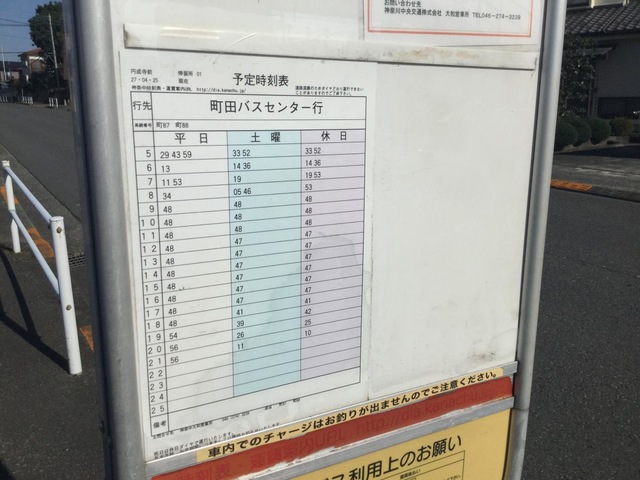 お問い合わせ先
神奈川中央交通株式会社 大和営業所 TEL046-274-3239
円成寺前 停留所 01
27-04-25 現在
予定時刻表
行先 町田バスセンター行
系統番号 町87 町88
平日 土曜 休日
5 29 43 59 33 52 33 52
6 13 14 36 14 36
7 11 53 19 19 53
8 34 05 46 53
9 48 48 48
10 48 48 48
11 48 48 48
12 48 47 47
13 48 47 47
14 48 47 47
15 48 47 47
16 48 47 47
17 48 47 47
18 48 41 41
19 54 39 42
20 56 26 25
21 56 11 10
22
23
24
25
備考
車内でのチャージはお釣りが出ませんのでご注意ください。
ス利用上のお願い